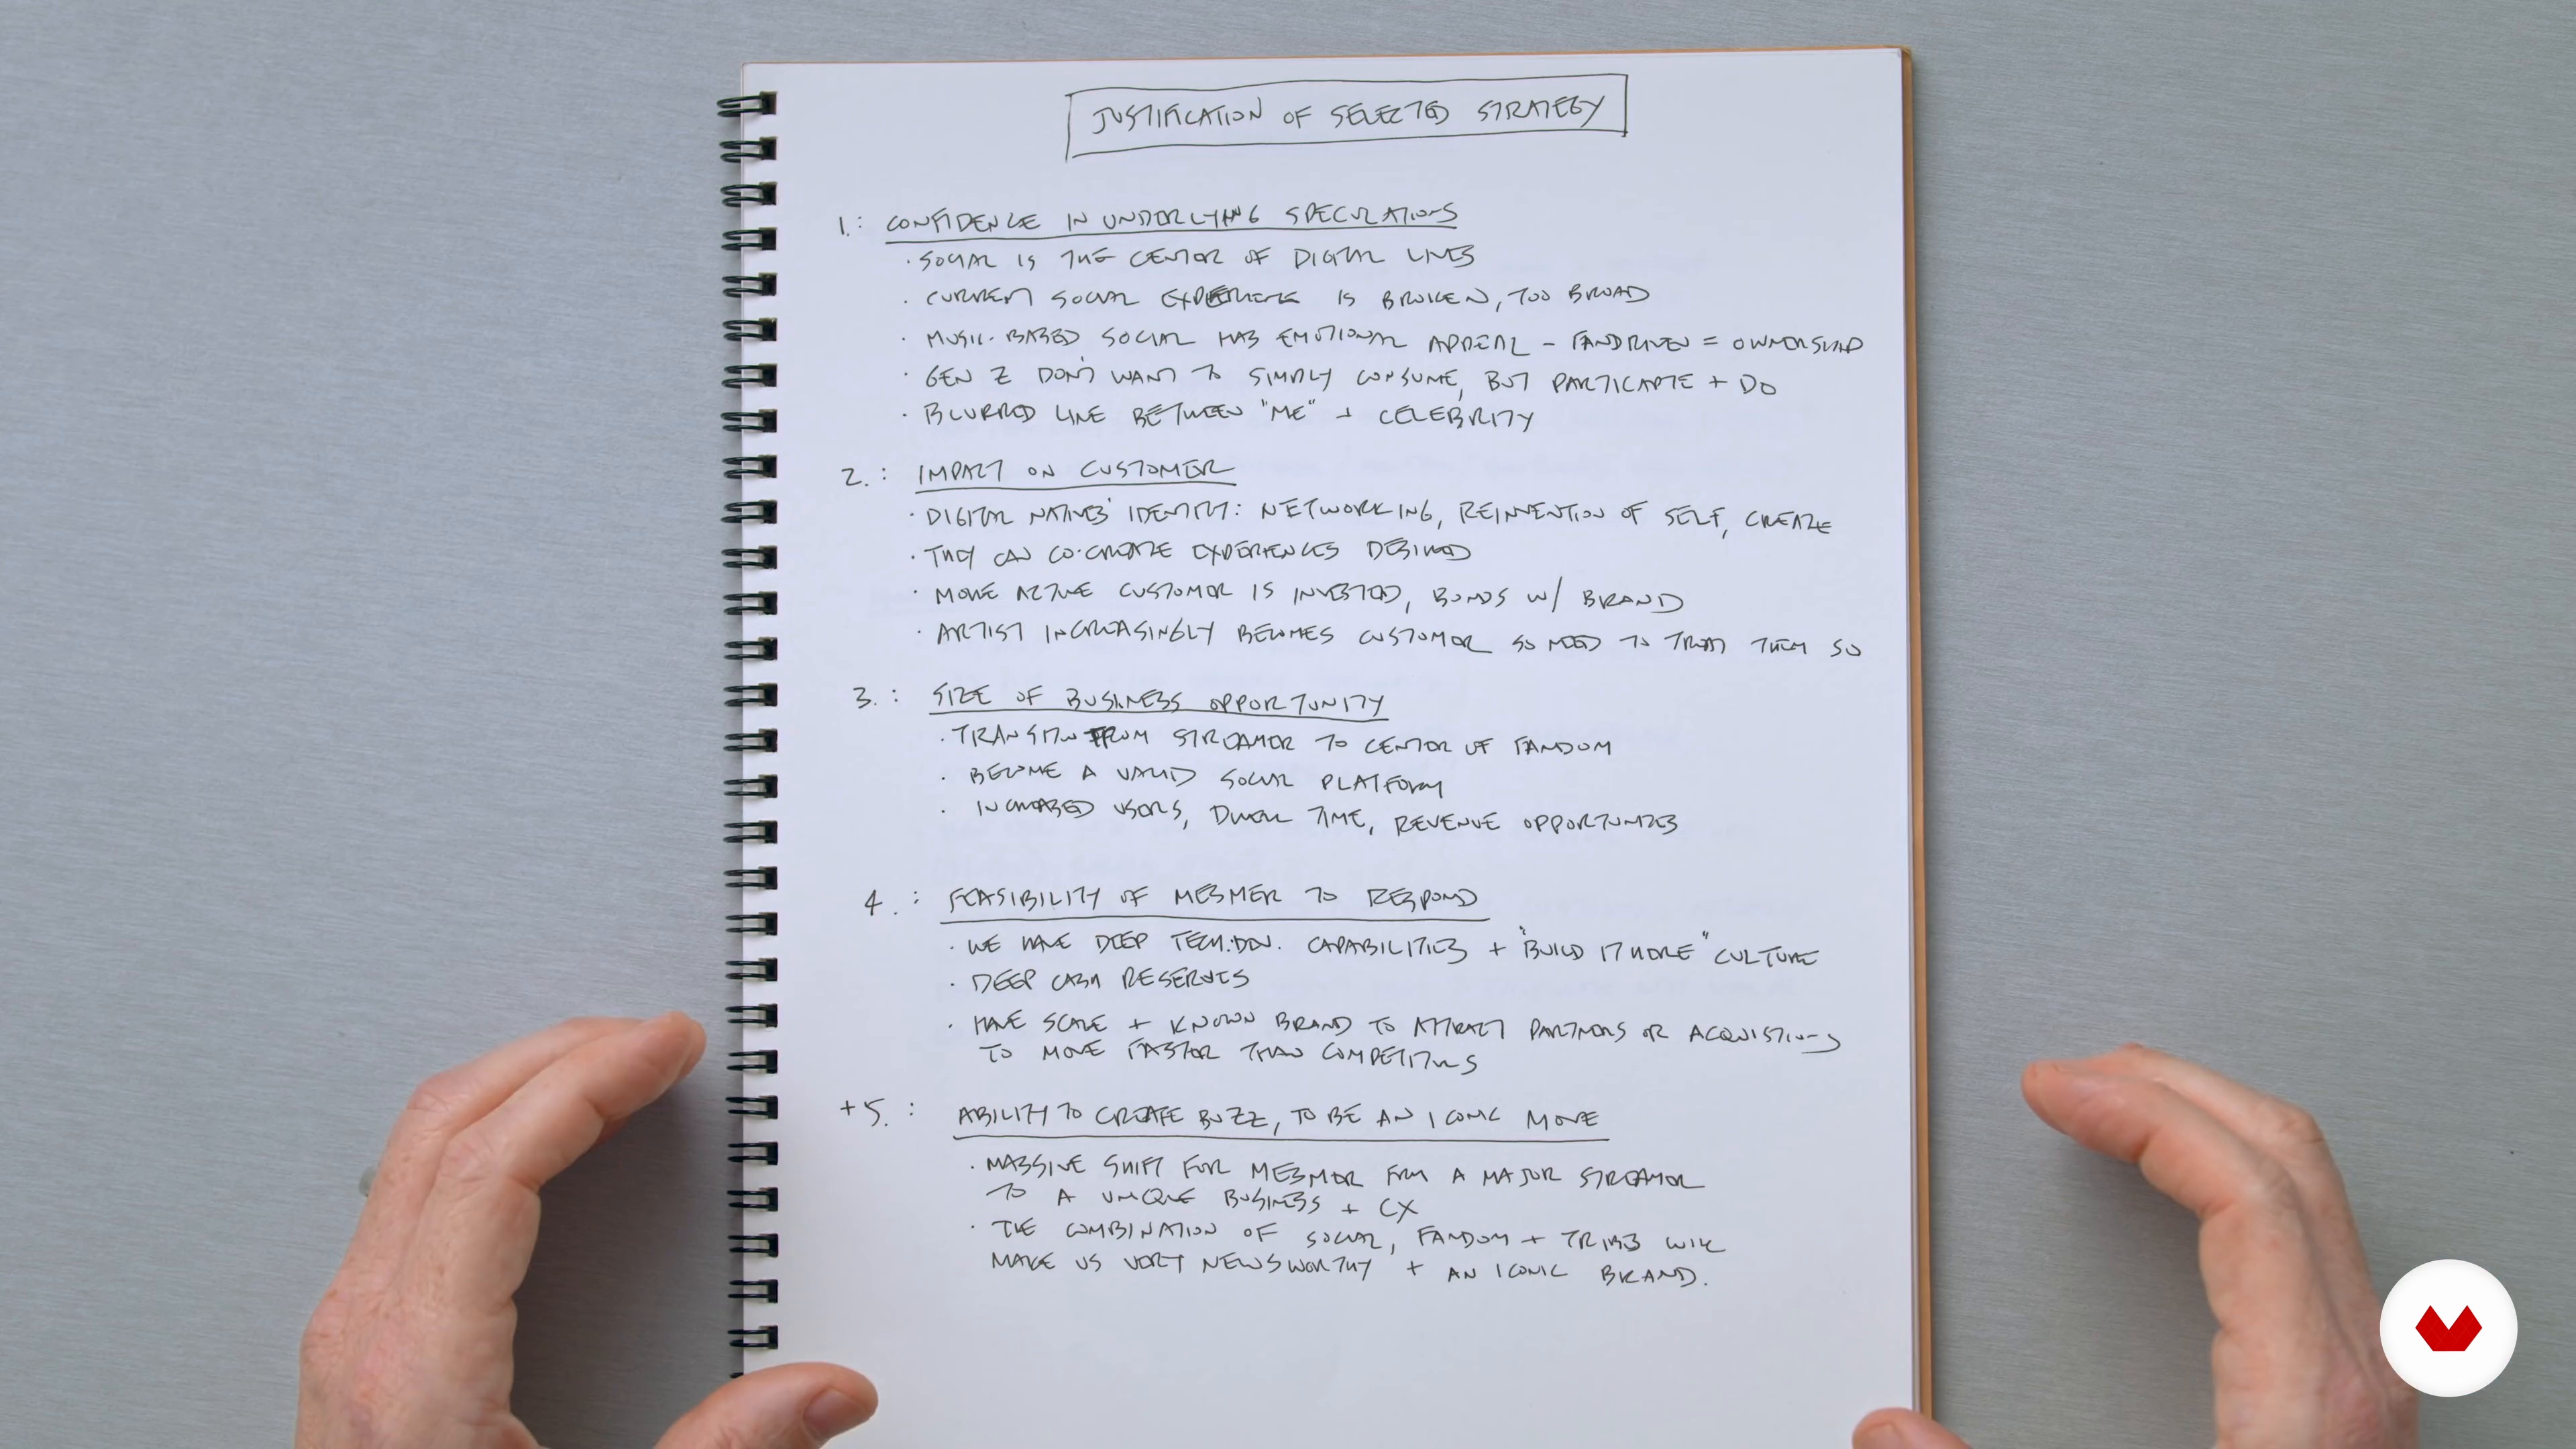 JUSTIFICATION OF SELECTED STRATEGY
1.: CONFIDENCE IN UNDERLYING SPECULATIONS
· SOCIAL IS THE CENTER OF DIGITAL LIVES
· CURRENT SOCIAL EXPERIENCE IS BROKEN, TOO BROAD
· MUSIC-BASED SOCIAL HAS EMOTIONAL APPEAL - FANDRIVEN = OWNERSHIP
· GEN Z DON'T WANT TO SIMPLY CONSUME, BUT PARTICAPTE + DO
· BLURRED LINE BETWEEN "ME" + CELEBRITY
2.: IMPACT ON CUSTOMER
· DIGITAL NATIVES' IDENTITY: NETWORKING, REINVENTION OF SELF, CREATE
· THEY CAN CO-CREATE EXPERIENCES DESIRED
· MORE ACTIVE CUSTOMER IS INVESTED, BONDS W/ BRAND
· ARTIST INCREASINGLY BECOMES CUSTOMER SO NEED TO TREAT THEM SO
3.: SIZE OF BUSINESS OPPORTUNITY
· TRANSITION FROM STREAMER TO CENTER OF FANDOM
· BECOME A VALID SOCIAL PLATFORM
· INCREASED USERS, DWELL TIME, REVENUE OPPORTUNITIES
4.: FEASIBILITY OF MESMER TO RESPOND
· WE HAVE DEEP TECH. DEV. CAPABILITIES + "BUILD IT HERE" CULTURE
· DEEP CASH RESERVES
· HAVE SCALE + KNOWN BRAND TO ATTRACT PARTNERS OR ACQUISTIONS
TO MOVE FASTER THAN COMPETITORS
+5.: ABILITY TO CREATE BUZZ, TO BE AN ICONIC MOVE
· MASSIVE SHIFT FOR MESMER FROM A MAJOR STREAMER
TO A UNIQUE BUSINESS + CX
· THE COMBINATION OF SOCIAL, FANDOM + TRIBES WILL
MAKE US VERY NEWSWORTHY + AN ICONIC BRAND.